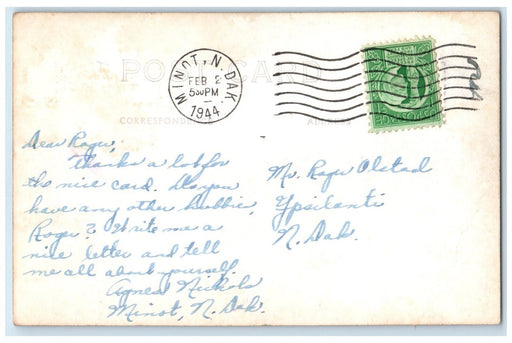 POST CARD
MINOT, N. DAK.
FEB 2
5 30 PM
1944
CORRESPONDENCE
ADDRESS
Dear Roger,
Thanks a lot for
the nice card. Do you
have any other hobbie,
Roger? Write me a
nice letter and tell
me all about yourself.
Agnes Nickols
Minot, N. Dak.
Mr. Roger Olstad
Ypsilanti
N. Dak.